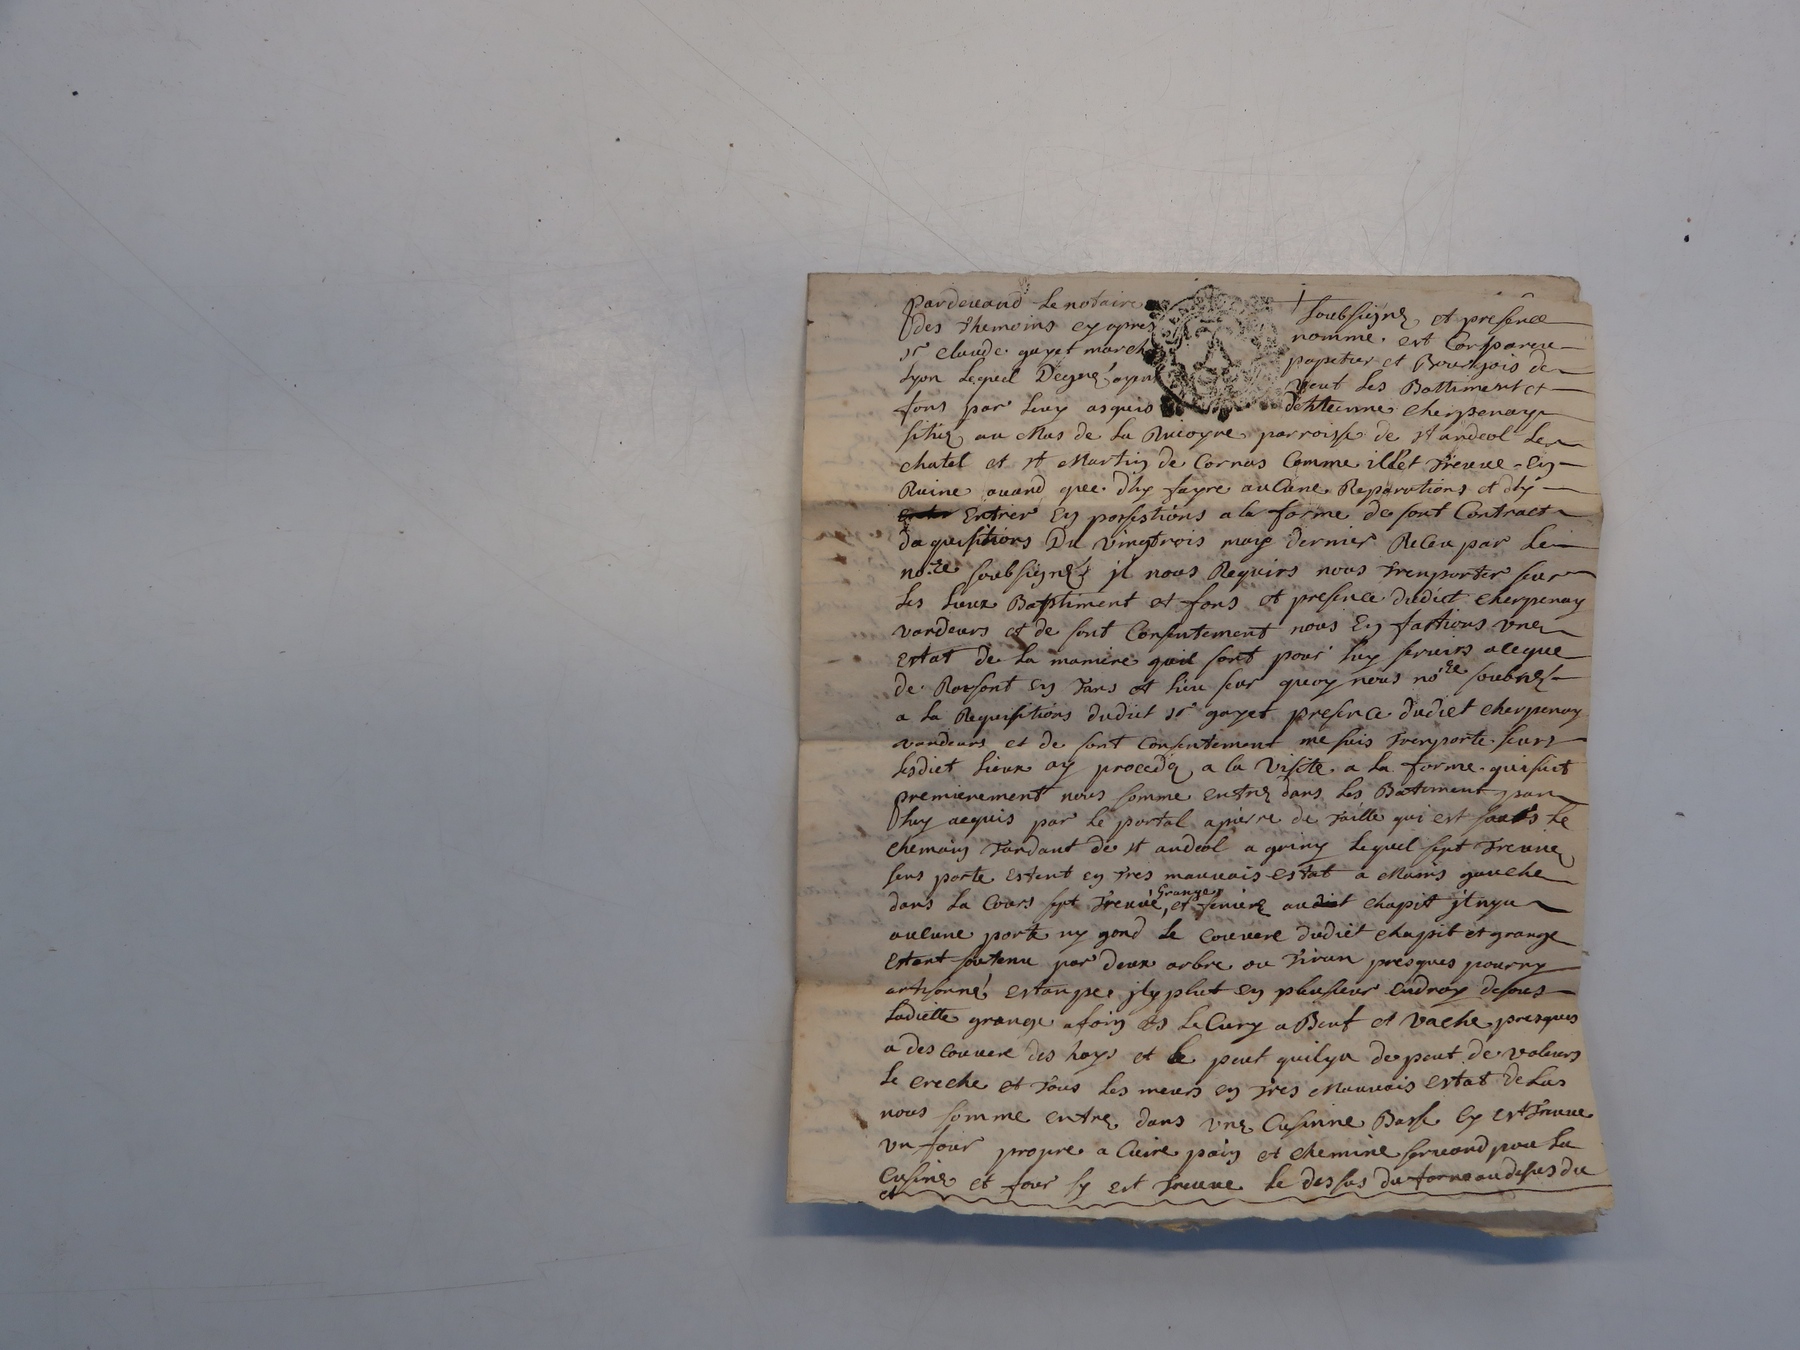 pardevand le notaire soubsigne et presence
des themoins cy apres nomme est Compareu
sr claude gayet march papetier et Bourgois de
Lyon lequel veut les Battiment et
fons par luy asquis de cherpenay
situe au Mas de la parroisse de st andeol le
chatel et st Martin de Cornas Comme illet treuve en
Ruine avand que dhy fayre auCune Reparations et dhy
Entrer en possestions a la forme de sont Contract
daquisitions Du vingtrois may dernier Receu par le
nore soubsigne jl nous Requirs nous trenporter sur
les lieux Baptiment et fons et presence dudict cherpenay
vandeurs et de sont Consentement nous en fastions vne
estat de la maniere quil sont pour luy servirs aceque
de Raisont en tans et lieu sur quoy nous nore soubne
a la Requisitions dudict sr gayet presence dudict cherpenay
vandeurs et de sont Consentement me suis trenporte seur
lesdict lieux ay procede a la visite a la forme quisuit
premierement nous somme entre dans les Batiment par
luy acquis par le portal apierre de taille qui est le
chemain tandant de st andeol a griny lequel sest treuve
sens porte estent en tres mauvais estat a Mains gauche
dans la Cours sest treuve, Grange et feniere audit chapit jl nya
aucune porte ny gond le couvere dudict chapit et grange
estant soutenu par deux arbre ou tiran presques pourry
estanpee jly plut en plusieur endroy desous
ladictte grange afoin es lecury a Beuf et vache presques
a des couvere des hays et le peut quilya de peut de valeurs
le creche et tous les meurs en tres Mauvais estat de Las
nous somme entre dans vne Cusinne Basse ey est treuve
vn four propre a Cuire pain et chemine servand pour la
Cusine et four sy est treuve le dessus du forneau desus du
et